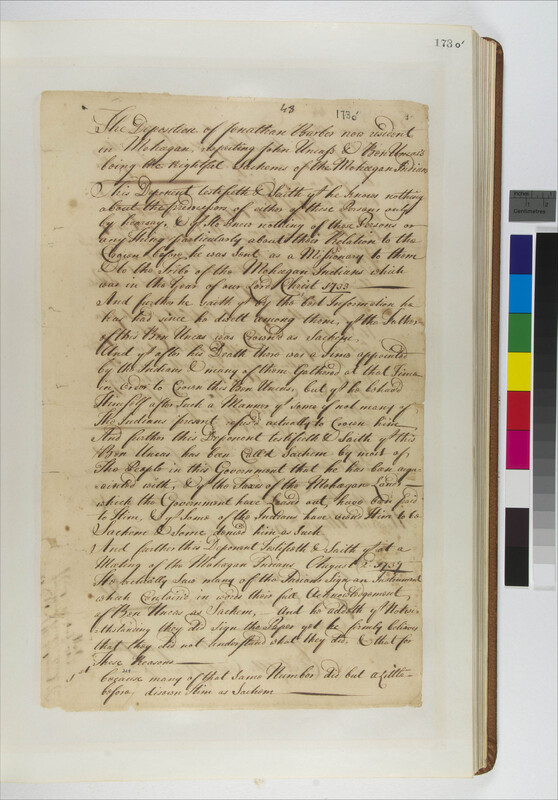 1730
48
1730
The Deposition of Jonathan Barber now resident
in Mohagan, respecting John Uncass & Ben Uncas's
being the Rightful Sachems of the Mohagan Indian
This Deponent testifieth & Saith yt he knows nothing
about the of either of these Persons only
by hearsay, & yt he knew nothing of these Persons or
any thing particularly about their Relation to the
Crown before he was Sent as a Missionary to them
to the Tribe of the Mohagan Indians which
was in the Year of our Lord Christ 1733
And further he saith yt by the best Information he
has had since he dwelt among them, yt the Father
of this Ben Uncas was Crown'd as Sachem,
And yt after his Death there was a Time appointed
by the Indians & many of them Gathered at that Time
in order to Crown this Ben Uncas, but yt he behav'd
Himself after such a Manner yt some if not many of
the Indians present refus'd actually to Crown him
And further this Deponent testifieth & Saith yt this
Ben Uncas has been Call'd Sachem by most of
the People in this Government that he has ben acqu-
ainted with, & yt the of the Mohagan Lands
which the Government have Leased out, have ben paid
to Him, & yt Some of the Indians have own'd Him to be
Sachem & Some denied him as Such
And further this Deponent Testifieth & Saith yt at a
Meeting of the Mohagan Indians August 1737
He actually saw many of the Indians Sign an Instrument
which Contained in words their full Acknowledgement,
of Ben Uncas as Sachem, And he addeth yt Notwi-
thstanding they did Sign the Paper yet he firmly believes
that they did not understand what they did, & that for
These Reasons
1st because many of that same Number did but a Little
before disown Him as Sachem